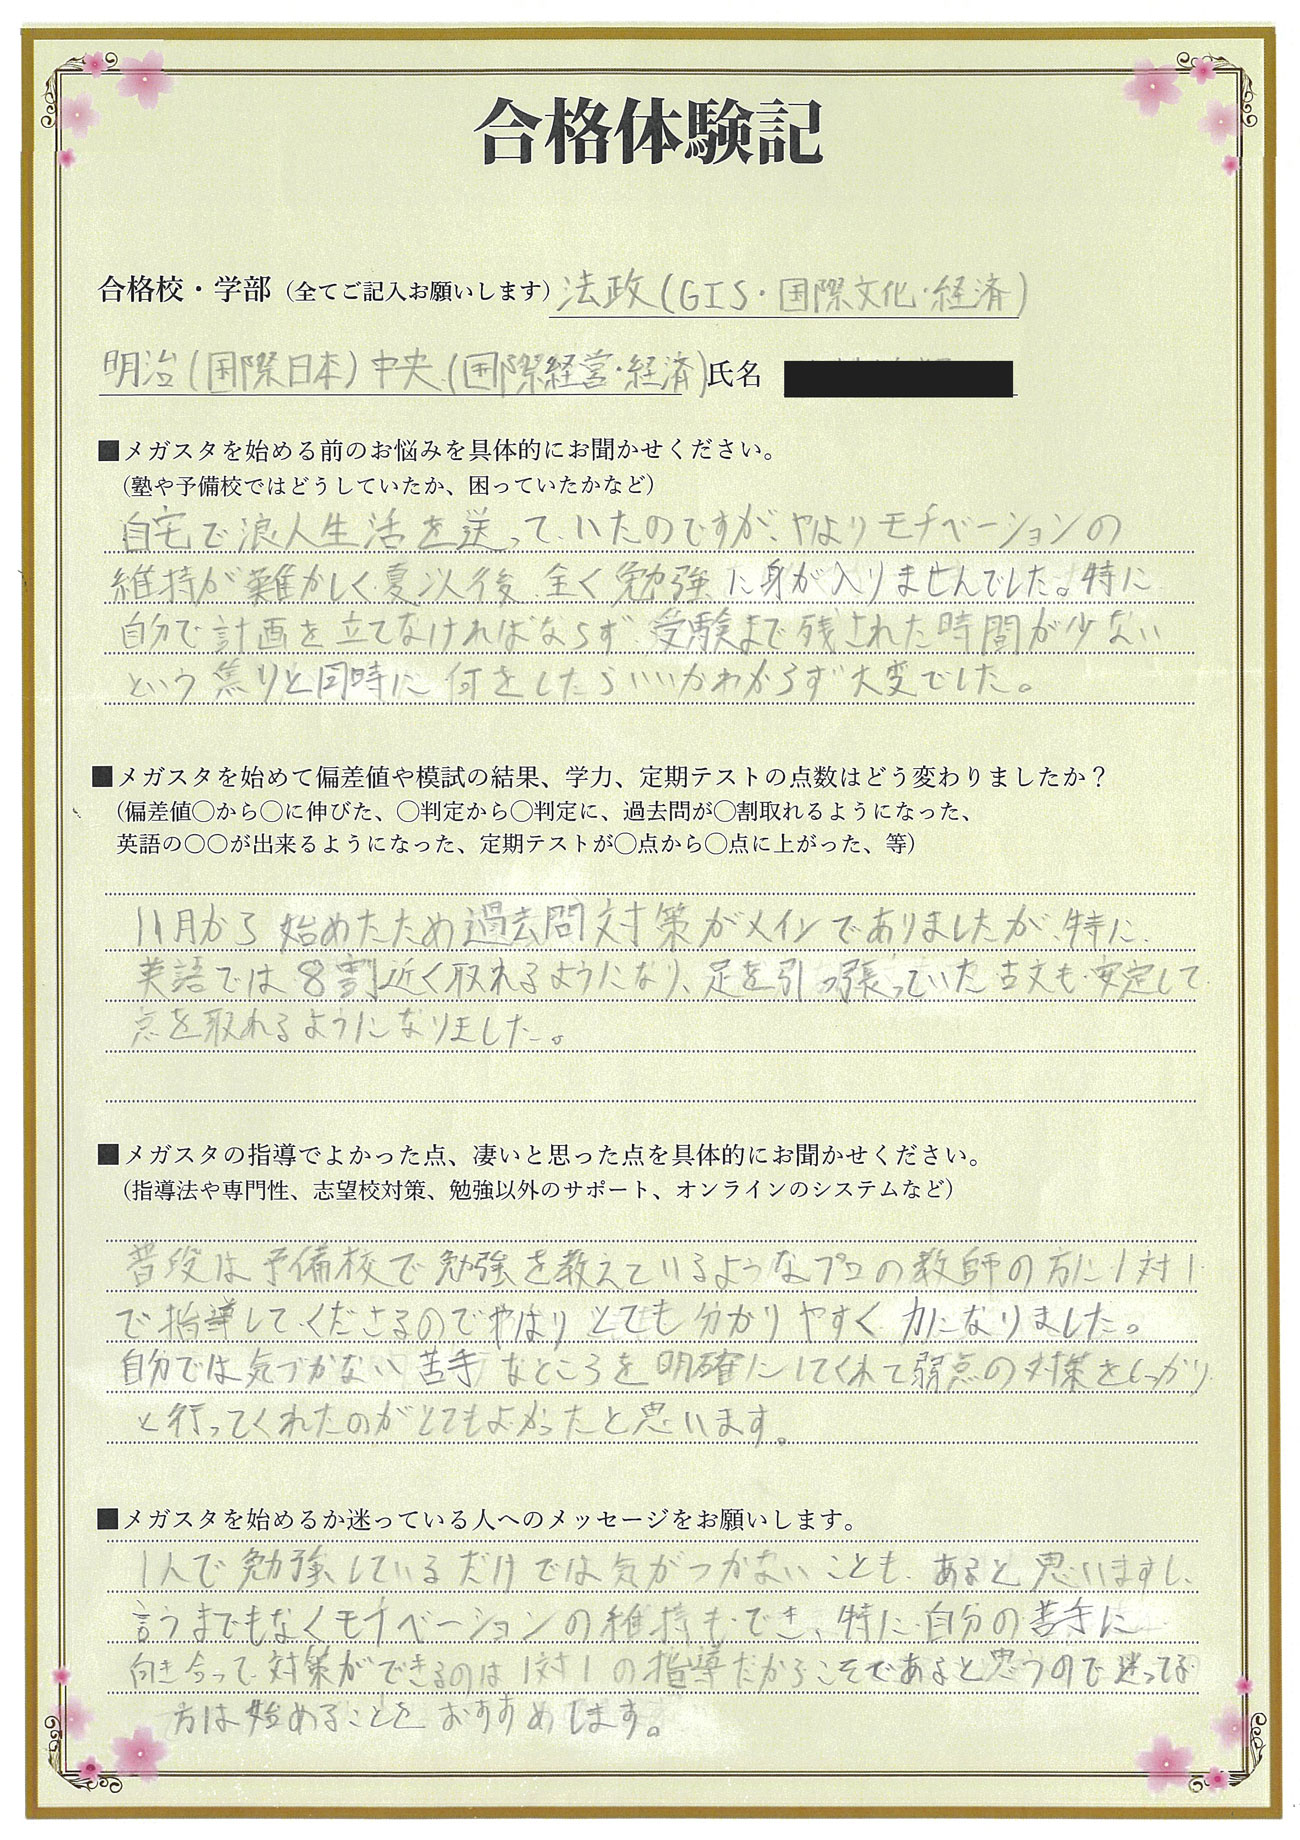 合格体験記
合格校・学部（全てご記入お願いします）法政(GIS・国際文化・経済)
明治(国際日本) 中央(国際経営・経済)氏名
■メガスタを始める前のお悩みを具体的にお聞かせください。
（塾や予備校ではどうしていたか、困っていたかなど）
自宅で浪人生活を送っていたのですが、やはりモチベーションの
維持が難かしく夏以後、全く勉強に身が入りませんでした。特に
自分で計画を立てなければならず、受験まで残された時間が少ない
という焦りと同時に何をしたらいいかわからず大変でした。
■メガスタを始めて偏差値や模試の結果、学力、定期テストの点数はどう変わりましたか？
（偏差値〇から〇に伸びた、〇判定から〇判定に、過去問が〇割取れるようになった、
英語の〇〇が出来るようになった、定期テストが〇点から〇点に上がった、等）
11月から始めたため過去問対策がメインでありましたが、特に、
英語では8割近く取れるようになり、足を引っ張っていた古文も安定して
点を取れるようになりました。
■メガスタの指導でよかった点、凄いと思った点を具体的にお聞かせください。
（指導法や専門性、志望校対策、勉強以外のサポート、オンラインのシステムなど）
普段は予備校で勉強を教えているようなプロの教師の方に1対1
で指導してくださるのでやはりとても分かりやすく力になりました。
自分では気づかない苦手なところを明確にしてくれて弱点の対策をしっかり
と行ってくれたのがとてもよかったと思います。
■メガスタを始めるか迷っている人へのメッセージをお願いします。
1人で勉強しているだけでは気がつかないことも、あると思いますし、
言うまでもなくモチベーションの維持もでき、特に自分の苦手に
向き合って対策ができるのは1対1の指導だからこそであると思うので迷ってる
方は始めることをおすすめします。